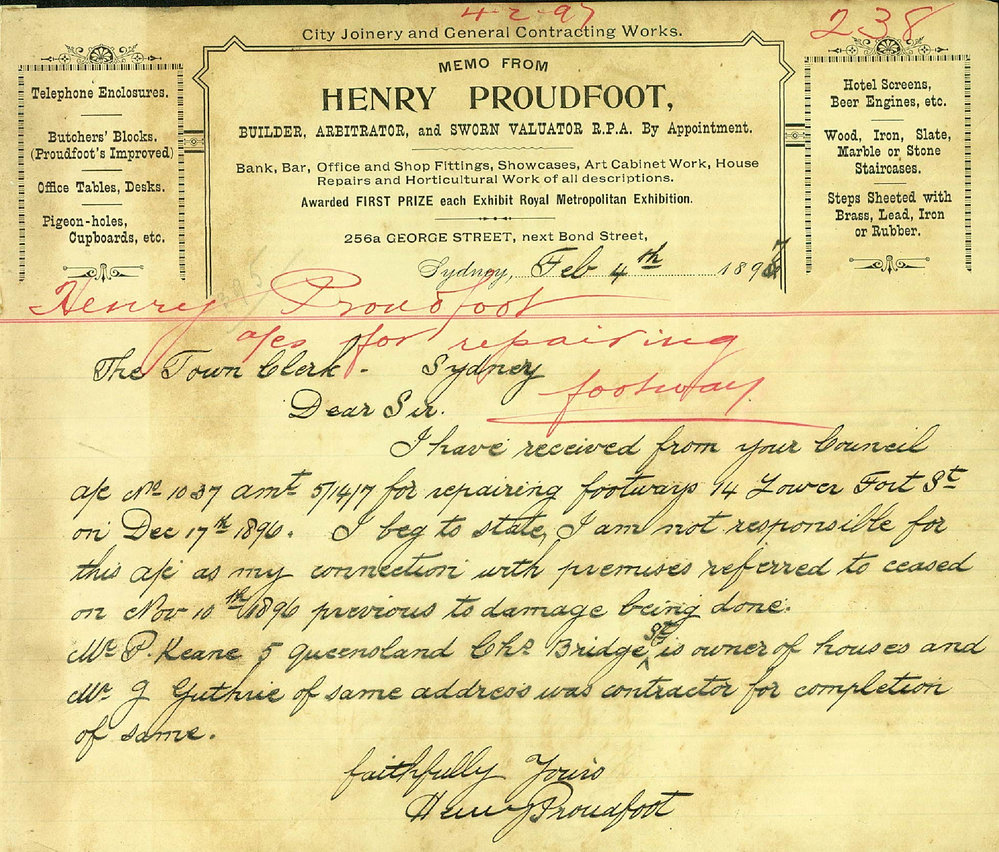 4-2-97
238
City Joinery and General Contracting Works.
Telephone Enclosures.
Butchers' Blocks.
(Proudfoot's Improved)
Office Tables, Desks.
Pigeon-holes,
Cupboards, etc.
MEMO FROM
HENRY PROUDFOOT,
BUILDER, ARBITRATOR, and SWORN VALUATOR R.P.A. By Appointment.
Bank, Bar, Office and Shop Fittings, Showcases, Art Cabinet Work, House
Repairs and Horticultural Work of all descriptions.
Awarded FIRST PRIZE each Exhibit Royal Metropolitan Exhibition.
256a GEORGE STREET, next Bond Street,
Hotel Screens,
Beer Engines, etc.
Wood, Iron, Slate,
Marble or Stone
Staircases.
Steps Sheeted with
Brass, Lead, Iron
or Rubber.
Sydney, Feb 4th 1897
Henry Proudfoot
a/cs for repairing
footway
The Town Clerk - Sydney
Dear Sir.
I have received from your Council
a/c No 1037 amt 5/14/7 for repairing footways 14 Lower Fort St
on Dec 17th 1896. I beg to state, I am not responsible for
this a/c as my connection with premises referred to ceased
on Nov 10th 1896 previous to damage being done.
Mr P. Keane 5 Queensland Chs Bridge St is owner of houses and
Mr J Guthrie of same address was contractor for completion
of same.
faithfully Yours
Henry Proudfoot